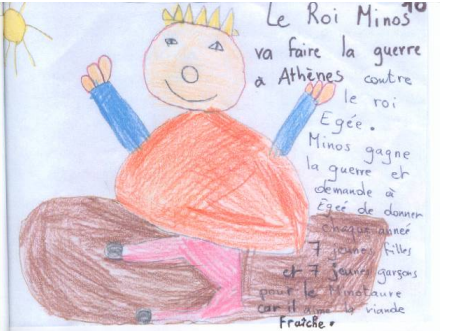 10
Le Roi Minos
va faire la guerre
à Athènes contre
le roi
Egée.
Minos gagne
la guerre et
demande à
Egée de donner
chaque année
7 jeunes filles
et 7 jeunes garçons
pour le Minotaure
car il aime la viande
Fraîche.